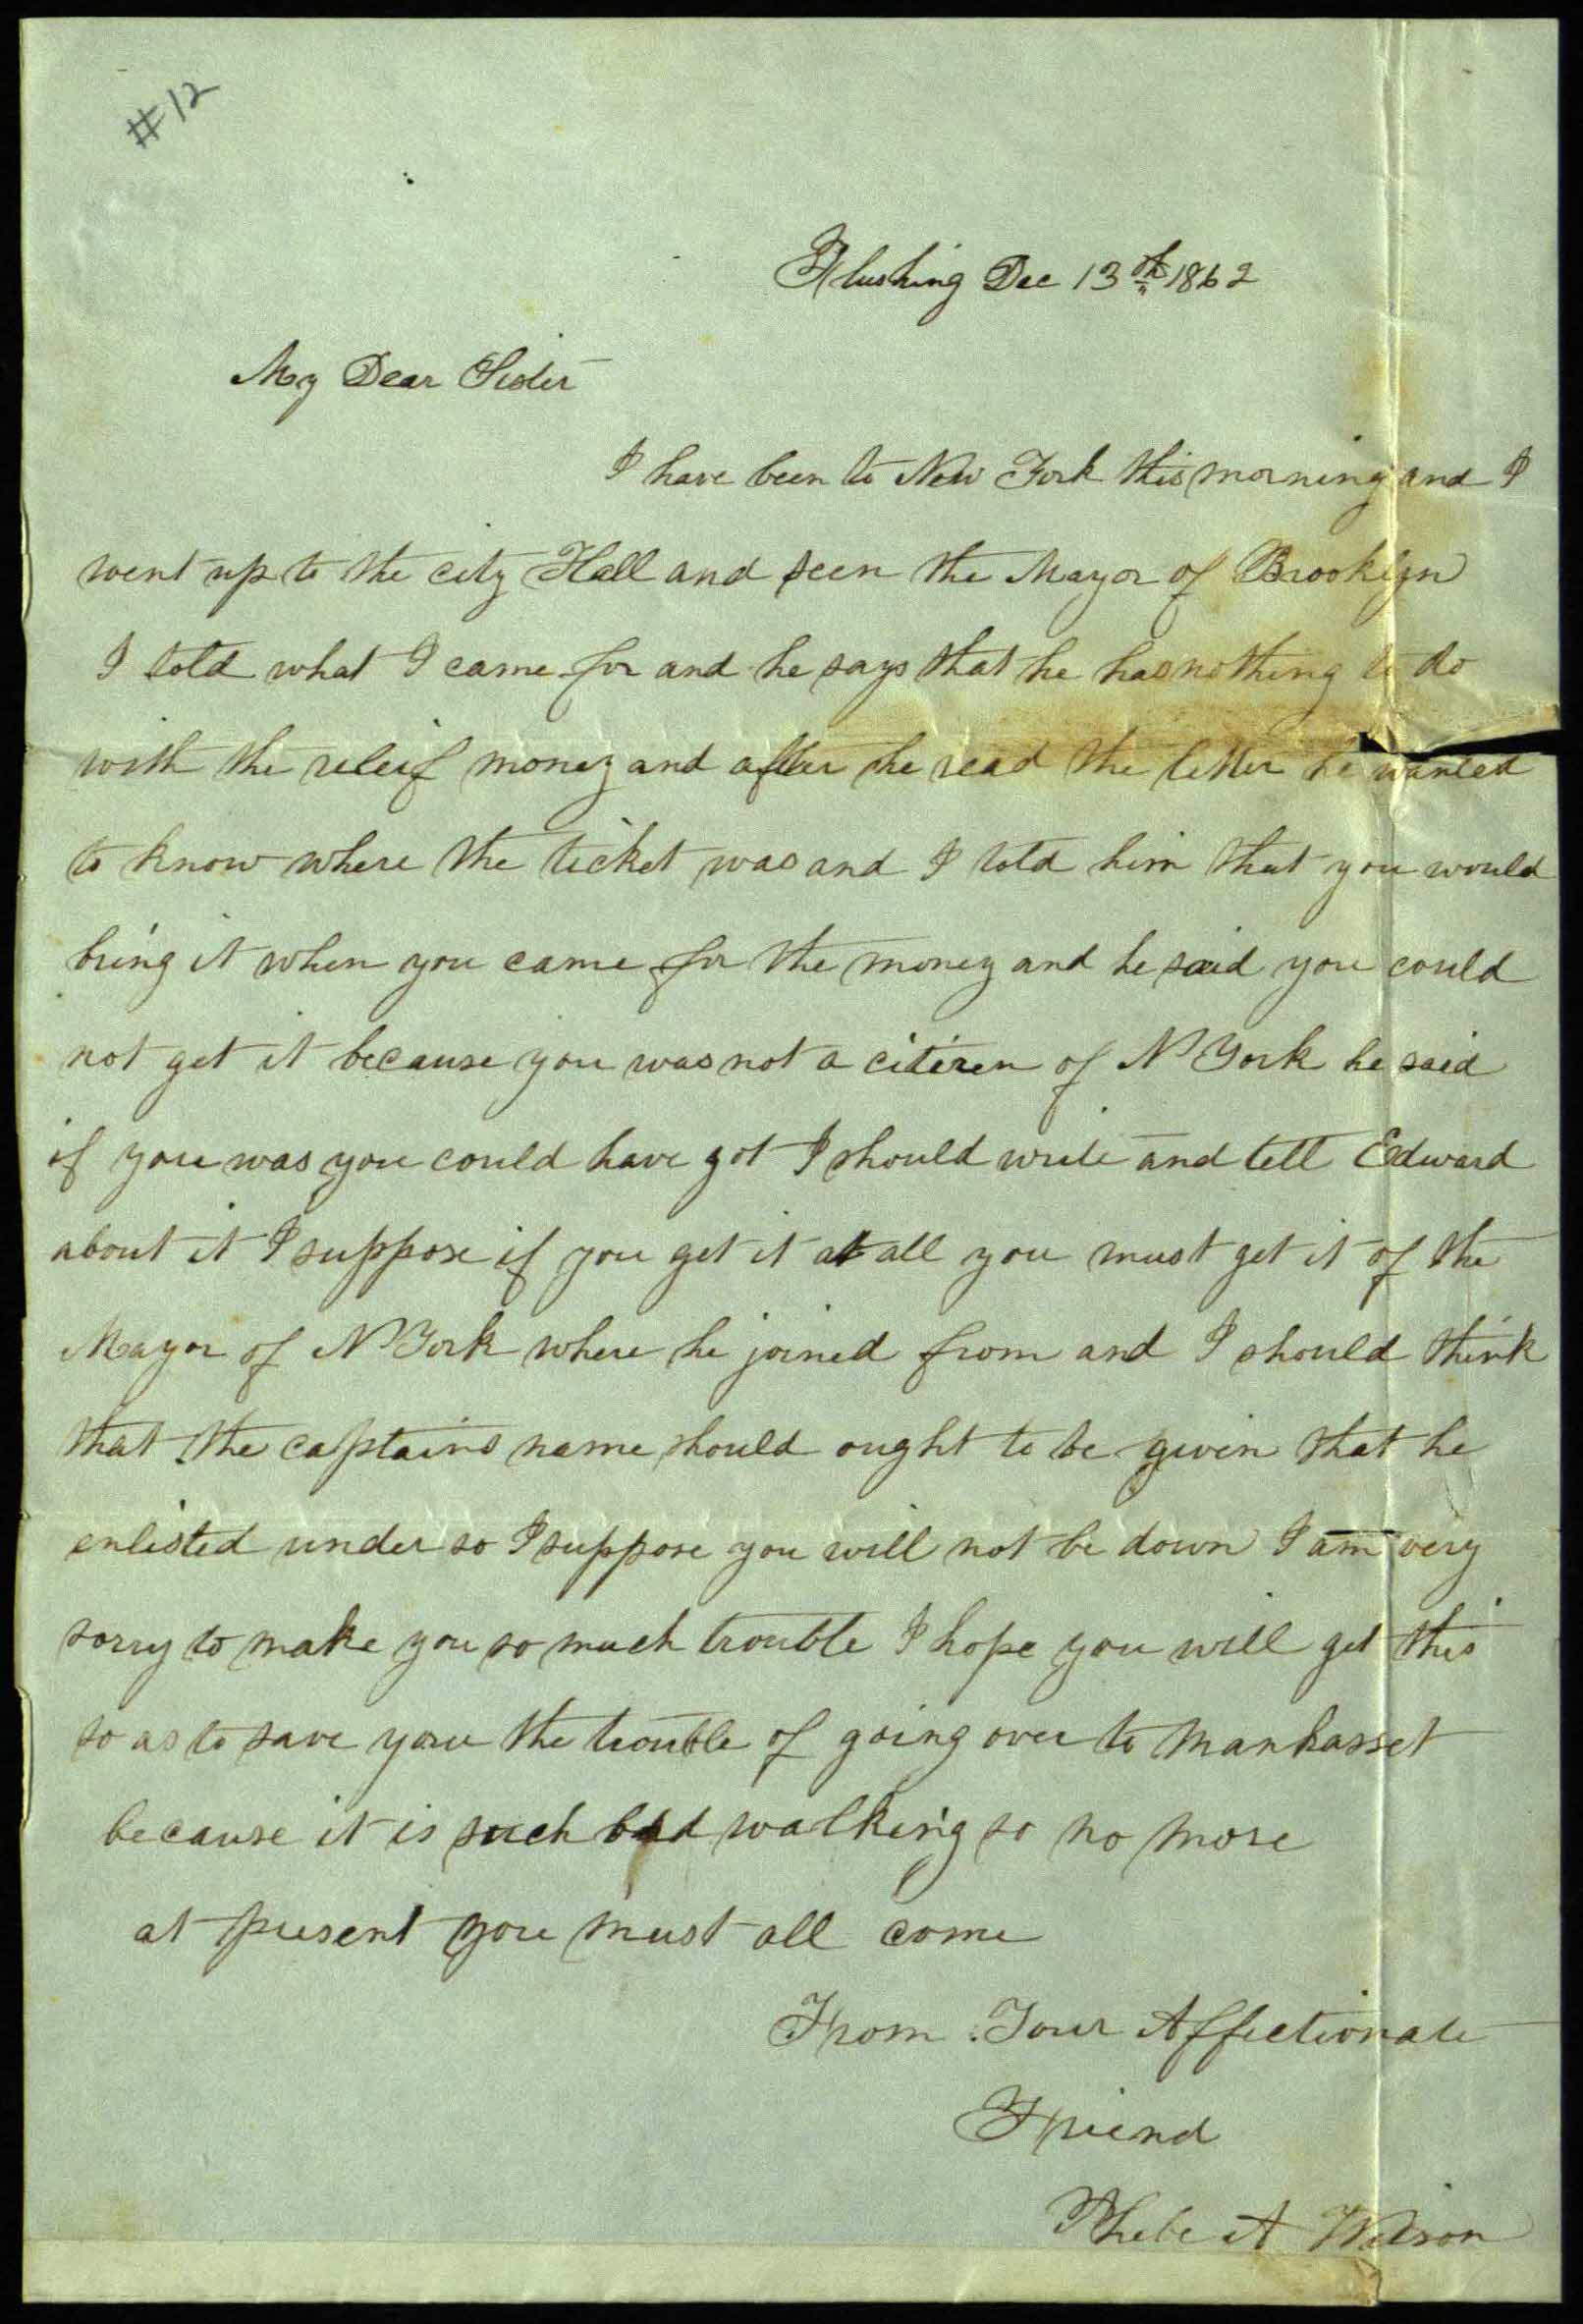 #12
Flushing Dec 13th 1862
My Dear Sister
I have been to New York this morning and I
went up to the city Hall and seen the Mayor of Brooklyn
I told what I came for and he says that he has nothing to do
with the releif money and after he read the letter he wanted
to know where the ticket was and I told him that you would
bring it when you came for the money and he said you could
not get it because you was not a citizen of N York he said
if you was you could have got I should write and tell Edward
about it I suppose if you get it at all you must get it of the
Mayor of N York where he joined from and I should think
that the captains name should ought to be given that he
enlisted under so I suppose you will not be down I am very
sorry to make you so much trouble I hope you will get this
so as to save you the trouble of going over to Manhasset
because it is such bad walking so no more
at present you must all come
From Your Affectionate
Friend
Phebe A Wilson